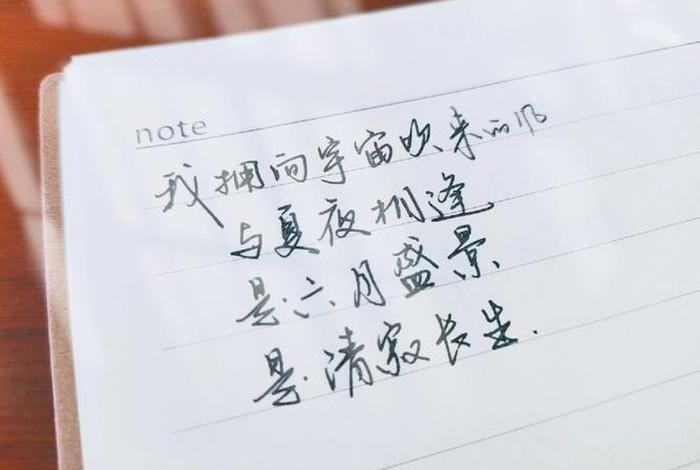 note
我拥向宇宙吹来的风
与夏夜相逢
是六月盛景
是清寂长生.